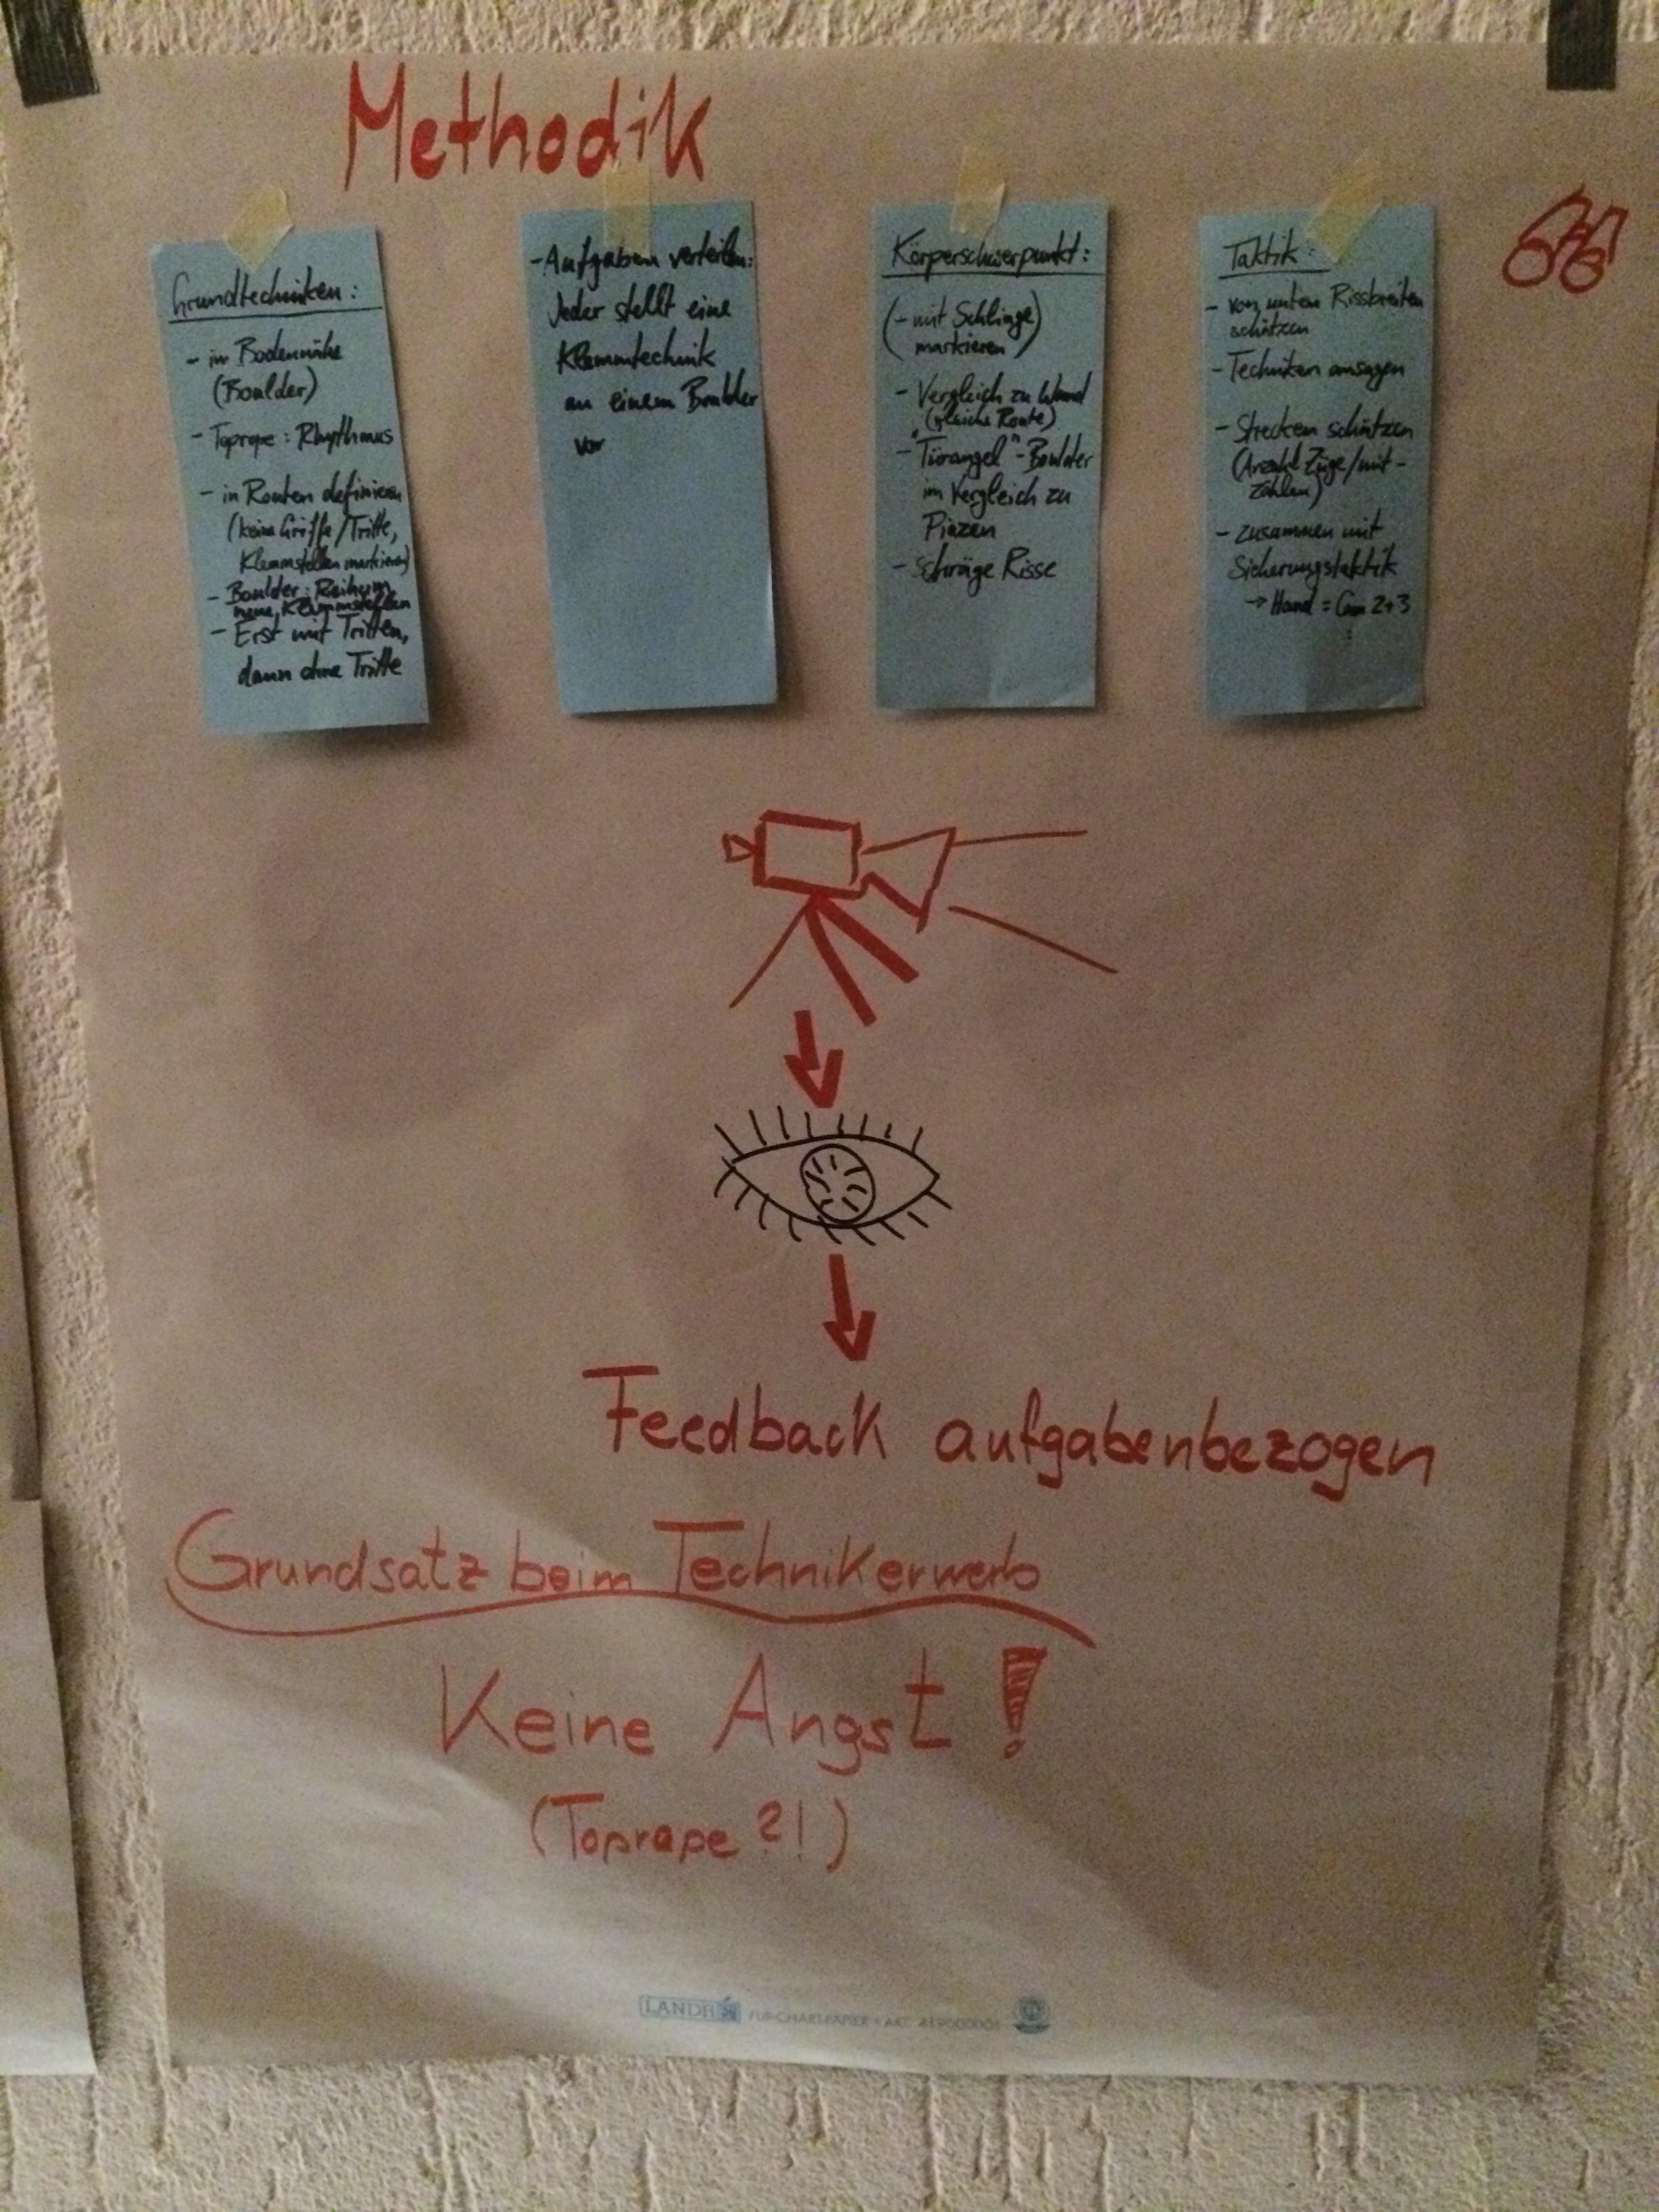 Methodik
Grundtechniken:
- in Bodennähe
(Boulder)
- Toprope: Rhythmus
- in Routen definieren
(keine Griffe/Tritte,
Klemmstellen markieren)
- Boulder: Reihum
neue Klemmstellen
- Erst mit Tritten,
dann ohne Tritte
- Aufgaben verteilen:
Jeder stellt eine
Klemmtechnik
an einem Boulder
vor
Körperschwerpunkt:
(- mit Schlinge)
markieren)
- Vergleich zu Wand
(gleiche Route)
- "Türangel"-Boulder
im Vergleich zu
Piazen
- schräge Risse
Taktik:
- von unten Rissbreiten
schätzen
- Techniken ansagen
- Strecken schätzen
(Anzahl Züge/mit-
zählen)
- zusammen mit
Sicherungstaktik
→ Hand = Cam 2+3
Feedback aufgabenbezogen
Grundsatz beim Technikerwerb
Keine Angst!
(Toprope?!)
LANDRÉ FLIP-CHART-PAPIER